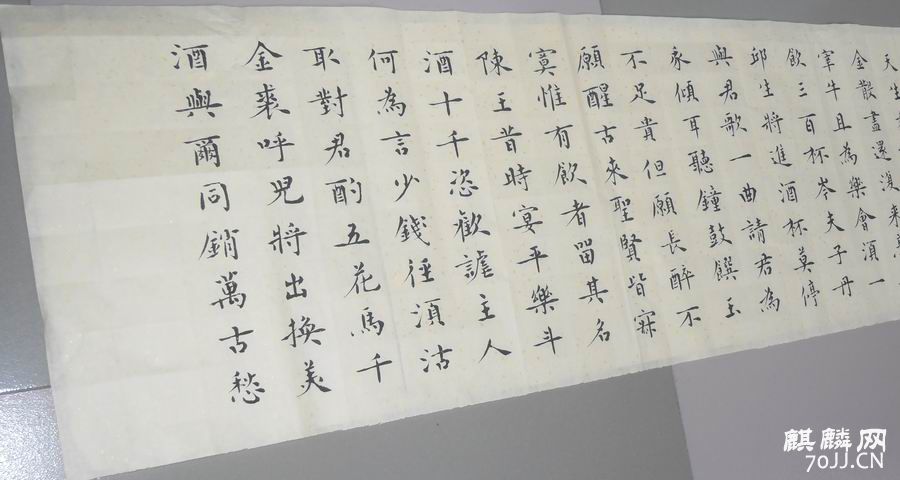 天生
金散盡還復来
宰牛且為樂會須一
飲三百杯岑夫子丹
邱生將進酒杯莫停
與君歌一曲請君為
我傾耳聽鐘鼓饌玉
不足貴但願長醉不
願醒古來聖賢皆寂
寞惟有飲者留其名
陳王昔時宴平樂斗
酒十千恣歡謔主人
何為言少錢徑須沽
取對君酌五花馬千
金裘呼兒將出換美
酒與爾同銷萬古愁
麒麟网
70JJ.CN